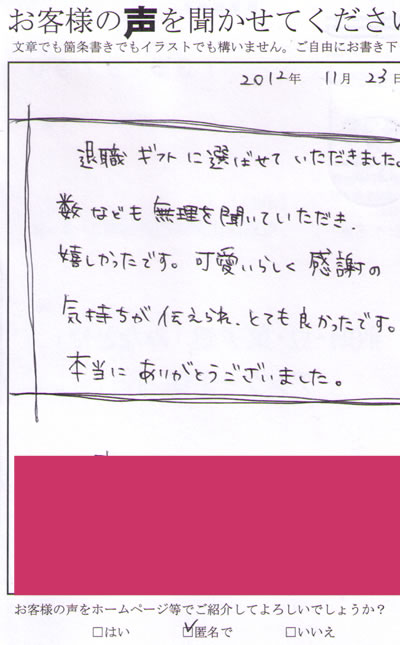 お客様の声を聞かせてください
文章でも箇条書きでもイラストでも構いません。ご自由にお書き下
2012年 11月 23日
退職ギフトに選ばせていただきました。
数なども無理を聞いていただき、
嬉しかったです。可愛いらしく感謝の
気持ちが伝えられ、とても良かったです。
本当にありがとうございました。
お客様の声をホームページ等でご紹介してよろしいでしょうか？
□はい ☑匿名で □いいえ